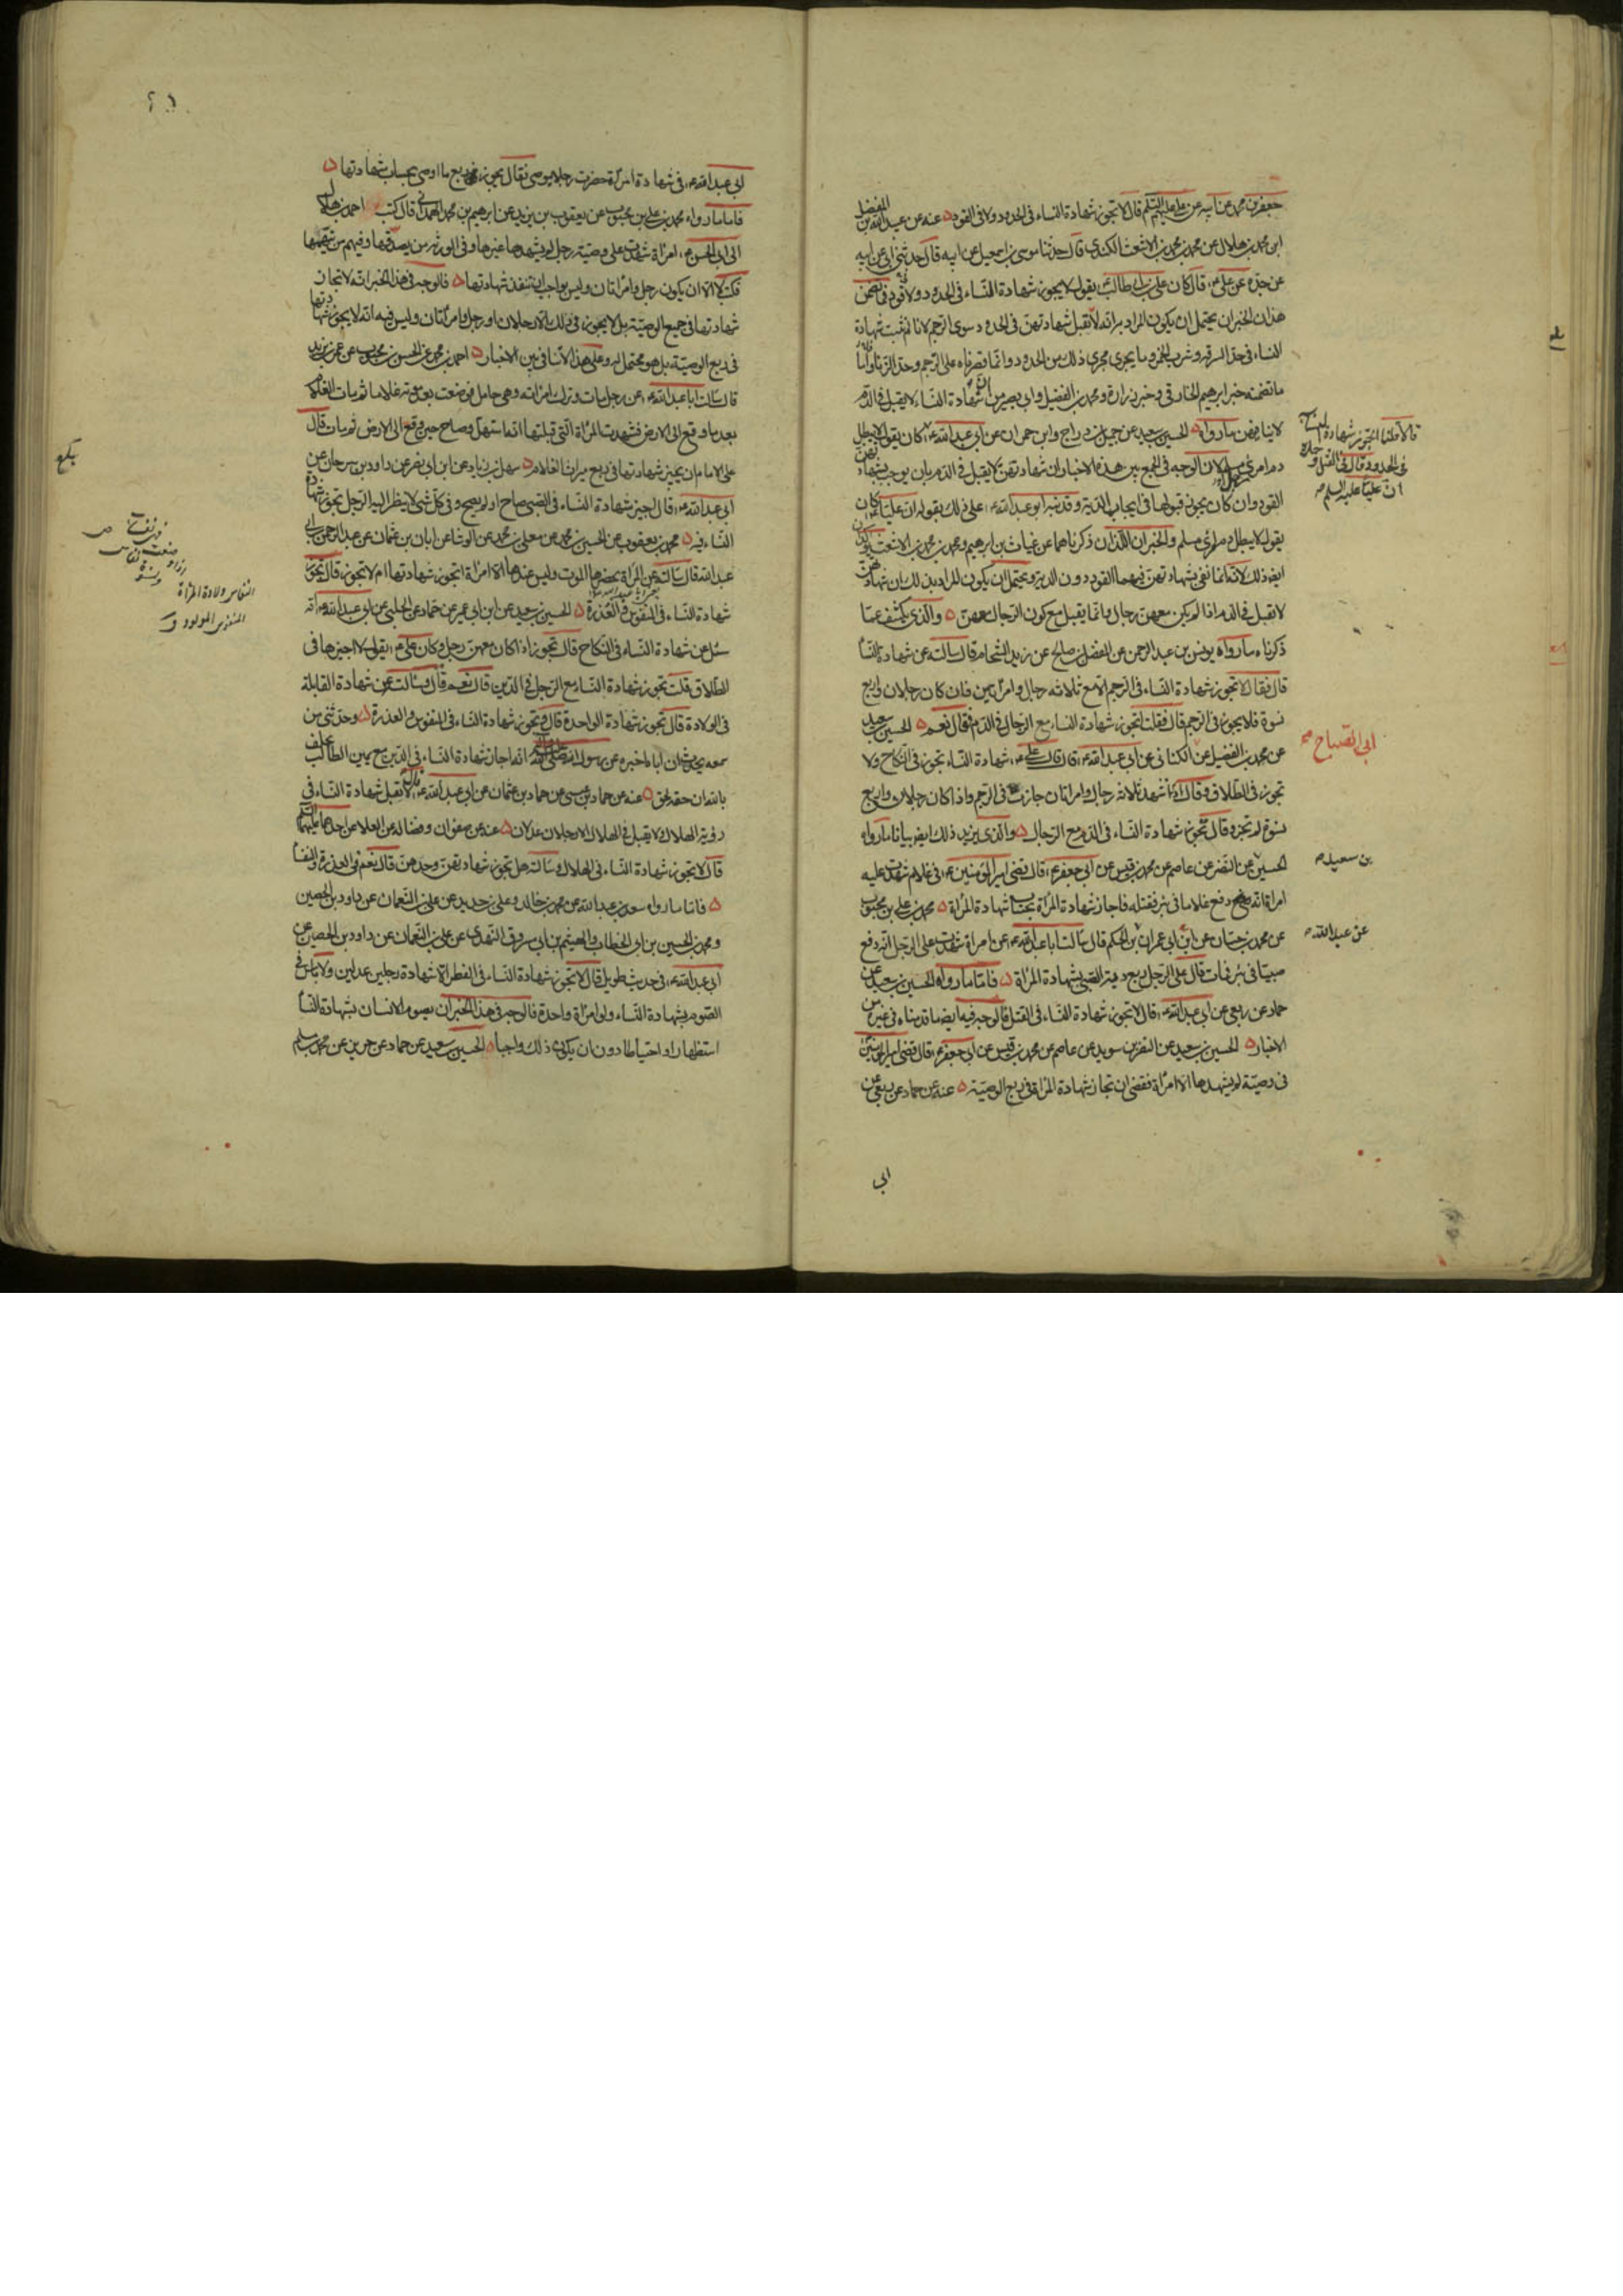 جعفر بن محمد عن ابيه عن علي عليهم السلم قال لا تجوز شهادة النساء في الحدود ولا في القود ۵ عنه عن عبيد الله بن المفضل
ابن محمد بن هلال عن محمد بن محمد بن الاشعث الكندي قال حدثنا موسى بن اسمعيل عن ابيه قال حدثني ابي عن ابيه
عن جده عن علي ع قال كان علي بن ابي طالب يقول لا يجوز شهادة النساء في الحدود ولا قود في تضمن
هذان الخبران يحتمل ان يكون المراد بهما انه لا تقبل شهادتهن في الحدود سوى الرجم لانا لم نثبت شهادة
النساء في حد السرقة وشرب الخمر وما يجري مجرى ذلك من الحدود وانما قصرناه على الرجم وحد الزنا واما
ما تضمنه خبر ابرهيم الخارقي وخبر زرارة ومحمد بن الفضيل وابي بصير من ان شهادة النساء لا يقبل في الدم
لا ينافيهن ما رواه ۵ الحسين بن سعيد عن جميل بن دراج وابن حمران عن ابي عبد الله ع كان يقول لا يبطل
دم امرئ مسلم لان الوجه في الجمع بين هذه الاخبار ان شهادتهن لا يقبل في الدم بان يوجب بشهادتهن
القود وان كان يجوز قبولها في ايجاب الدية وقد نبه ابو عبد الله ع على ذلك بقوله ان عليا ع كان
يقول لا يبطل دم امرئ مسلم والخبران اللذان ذكرناهما عن غياث بن ابرهيم ومحمد بن محمد بن الاشعث يؤكدان
ايضا ذلك لانه انما نفى بشهادتهن فيهما القود دون الدية ويحتمل ان يكون المراد بذلك ان شهادتهن
لا تقبل في الدم اذا لم يكن معهن رجال وانما يقبل مع كون الرجال معهن ۵ والذي يكشف عما
ذكرناه ما رواه يونس بن عبد الرحمن عن المفضل بن صالح عن زيد الشحام قال سالته عن شهادة النساء
قال فقال لا تجوز شهادة النساء في الرجم الا مع ثلاثة رجال وامراتين فان كان رجلان واربع
نسوة فلا يجوز في الرجم قال فقلت اتجوز شهادة النساء مع الرجال في الدم فقال نعم ۵ الحسين بن سعيد
عن محمد بن الفضيل عن الكناني عن ابي عبد الله ع قال قال علي ع شهادة النساء تجوز في النكاح ولا
تجوز في الطلاق وقال اذا شهد ثلاثة رجال وامراتان جاز في الرجم واذا كان رجلان واربع
نسوة لم تجز وقال تجوز شهادة النساء في الدم مع الرجال ۵ والذي يزيد ذلك ايضا بيانا ما رواه
الحسين عن النضر عن عاصم عن محمد بن قيس عن ابي جعفر ع قال قضى امير المؤمنين ع في غلام شهدت عليه
امراة انه دفع غلاما في بئر فقتله فاجاز شهادة المرأة بحساب شهادة المرأة ۵ محمد بن علي بن محبوب
عن محمد بن حسان عن ابن ابي عمران بن الحكم قال سالت ابا عبد الله ع عن امراة شهدت على الرجل انه دفع
صبيا في بئر فمات قال على الرجل ربع دية الصبي بشهادة المرأة ۵ فاما ما رواه الحسين بن سعيد عن
حماد عن ربعي عن ابي عبد الله ع قال لا تجوز شهادة النساء في القتل فالوجه فيه ايضا ما قدمناه في غيره من
الاخبار ۵ الحسين بن سعيد عن النضر بن سويد عن عاصم عن محمد بن قيس عن ابي جعفر ع قال قضى امير المؤمنين ع
في وصية لم يشهدها الا امرأة فقضى ان تجاز شهادة المرأة في ربع الوصية ۵ عنه عن حماد عن ربعي عن
ابي
قالا قلنا اتجوز شهادة النساء
في الحدود قال في القتل وحده
ان عليا عليه السلم
ابي الصباح صح
بن سعيد
عن عبد الله
ابي عبد الله ع في شهادة امرأة حضرت رجلا يوصي فقال يجوز في ربع ما اوصى بحساب شهادتها ۵
فاما ما رواه محمد بن علي بن محبوب عن يعقوب بن يزيد عن ابرهيم بن محمد الهمداني قال كتب احمد بن هلال
الى ابي الحسن ع امرأة شهدت على وصية رجل لم يشهدها غيرها وفي الورثة من يصدقها وفيهم من يتهمها
فكتب لا الا ان يكون رجل وامرأتان وليس بواجب ان تنفذ شهادتها ۵ فالوجه في هذا الخبر انه لا تجاز
شهادتها في جميع الوصية بل لا يجوز في ذلك الا رجلان او رجل وامرأتان وليس فيه انه لا يجوز شهادتها
في ربع الوصية بل هو محتمل له وعلى هذا لا تنافي بين الاخبار ۵ احمد بن محمد عن الحسن بن محبوب عن عمر بن يزيد
قال سالت ابا عبد الله ع عن رجل مات وترك امرأته وهي حامل فوضعت بعد موته غلاما ثم مات الغلام
بعد ما وقع الى الارض فشهدت المرأة التي قبلتها انه استهل وصاح حين وقع الى الارض ثم مات قال
على الامام ان يجيز شهادتها في ربع ميراث الغلام ۵ سهل بن زياد عن ابن ابي نصر عن داود بن سرحان عن
ابي عبد الله ع قال اجيز شهادة النساء في الصبي صاح او لم يصح وفي كل شئ لا ينظر اليه الرجل تجوز شهادة
النساء فيه ۵ محمد بن يعقوب عن الحسين بن محمد عن معلى بن محمد عن الوشا عن ابان بن عثمان عن عبد الرحمن بن ابي
عبد الله قال سالته عن المرأة يحضرها الموت وليس عندها الا امرأة اتجوز شهادتها ام لا تجوز قال تجوز
شهادة النساء في المنفوس والعذرة ۵ الحسين بن سعيد عن ابن ابي عمير عن حماد عن الحلبي عن ابي عبد الله ع انه
سئل عن شهادة النساء في النكاح قال تجوز اذا كان معهن رجل وكان علي ع يقول لا اجيزها في
الطلاق قلت تجوز شهادة النساء مع الرجل في الدين قال نعم قال وسالته عن شهادة القابلة
في الولادة قال تجوز شهادة الواحدة قال وتجوز شهادة النساء في المنفوس والعذرة ۵ وحدثني من
سمعه يحدث ان اباه اخبره عن رسول الله صلى الله عليه وآله انه اجاز شهادة النساء في الدين مع يمين الطالب يحلف
بالله ان حقه لحق ۵ عنه عن حماد بن عيسى عن حماد بن عثمان عن ابي عبد الله ع قال لا تقبل شهادة النساء في
رؤية الهلال ولا يقبل في الهلال الا رجلان عدلان ۵ عنه عن صفوان وفضالة عن العلا عن احدهما عليهما السلم
قال لا تجوز شهادة النساء في الهلال وسالته هل تجوز شهادتهن وحدهن قال نعم في العذرة والنفساء
۵ فاما ما رواه سعد بن عبد الله عن محمد بن خالد وعلي بن حديد عن علي بن النعمان عن داود بن الحصين
ومحمد بن الحسين بن ابي الخطاب والهيثم بن ابي مسروق النهدي عن علي بن النعمان عن داود بن الحصين عن
ابي عبد الله ع في حديث طويل قال لا تجوز شهادة النساء في الفطر الا شهادة رجلين عدلين ولا باس في
الصوم بشهادة النساء ولو امرأة واحدة فالوجه في هذا الخبر ان يصوم الانسان بشهادة النساء
استظهارا واحتياطا دون ان يكون ذلك واجبا ۵ الحسين بن سعيد عن حماد عن حريز عن محمد بن مسلم
بلغ
النفاس ولادة المرأة
المنفوس المولود